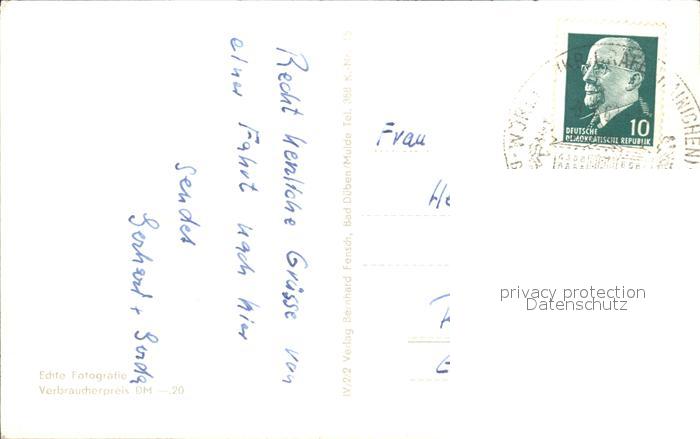 Recht herzliche Grüsse von
einer Fahrt nach hier
sendet
Gerhard + Gerda
Echte Fotografie
Verbraucherpreis DM —.20
IV/2/2 Verlag Bernhard Fensch, Bad Düben/Mulde Tel. 358 K.-Nr. 15
Frau
He
DEUTSCHE
DEMOKRATISCHE REPUBLIK
10
privacy protection
Datenschutz